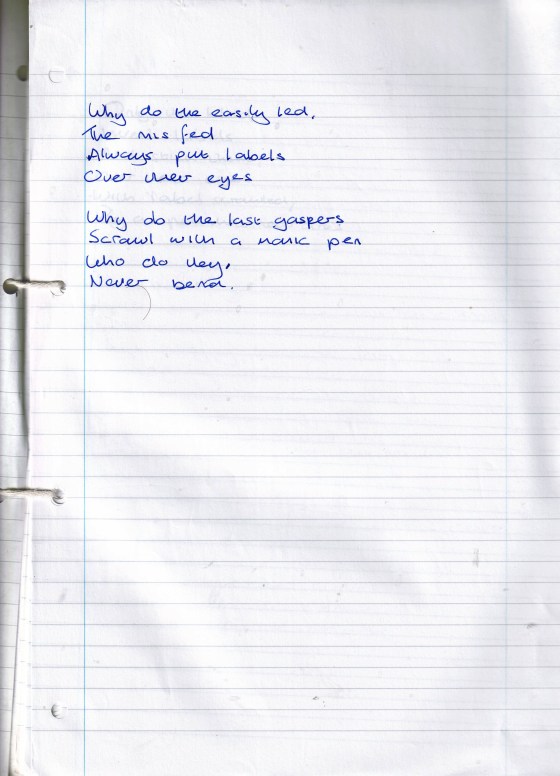 Why do the easily led,
The mis fed
Always put labels
Over their eyes
Why do the last gaspers
Scrawl with a manic pen
Who do they,
Never bend.